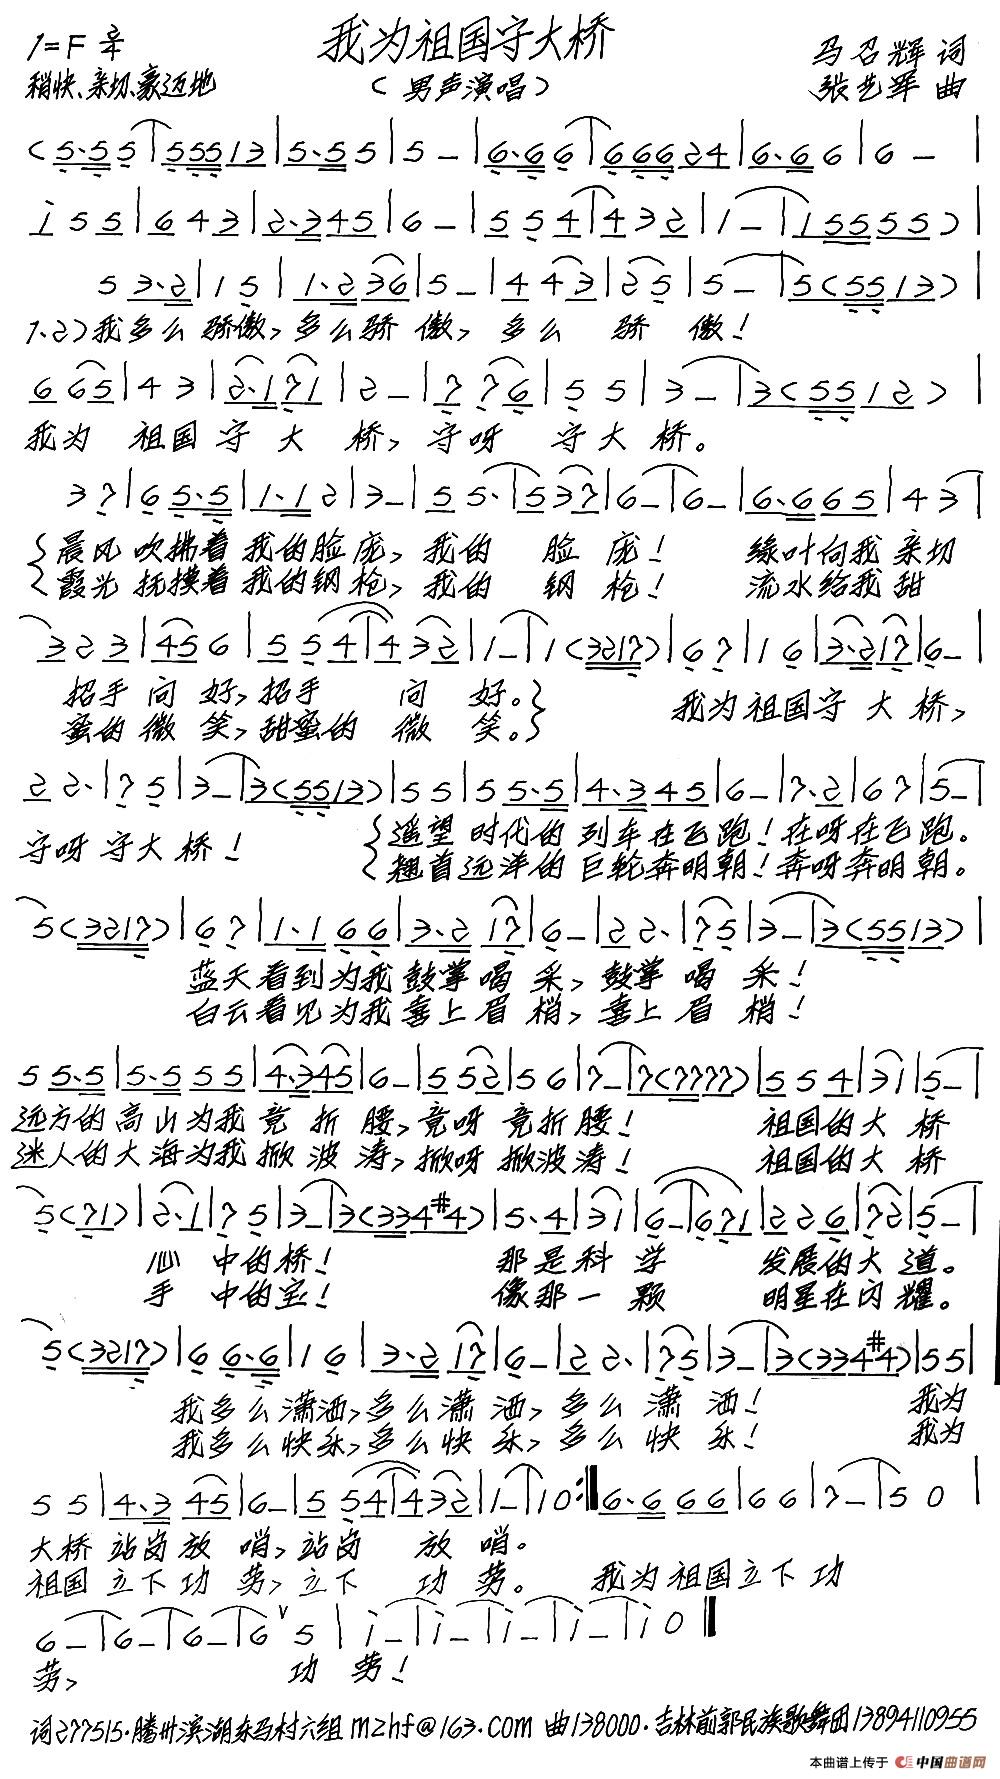 我为祖国守大桥
1=F 2/4
稍快、亲切、豪迈地
(男声演唱)
马召辉 词
张艺军 曲
(5·5 5|5551 3|5·5 5|5 –|6·6 6|6662 4|6·6 6|6 –|
i 5 5|6 4 3|2·3 4 5|6 –|5 5 4|4 3 2|1 –|1 5 5 5 5)|
5 3·2|1 5|1·2 3 6|5 –|4 4 3|2 5|5 –|5(5 5 1 3)|
1、2)我多么骄傲,多么骄傲,多么 骄 傲!
6 6 5|4 3|2·1 7 1|2 –|7 7 6|5 5|3 –|3(5 5 1 2)|
我为 祖国守大 桥,守呀 守大桥。
3 7|6 5·5|1·1 2|3 –|5 5·|5 3 7|6 –|6 –|6·6 6 5|4 3|
晨风吹拂着我的脸庞,我的 脸 庞! 缘叶向我亲切
霞光抚摸着我的钢枪,我的 钢 枪! 流水给我甜
3 2 3|4 5 6|5 5 4|4 3 2|1 –|1(3 2 1 7)|6 7|1 6|3·2 1 7|6 –|
招手问 好,招手 问 好。 我为祖国守大桥,
蜜的微 笑,甜蜜的 微 笑。
2 2·|7 5|3 –|3(5 5 1 3)|5 5|5 5·5|4·3 4 5|6 –|7·2|6 7|5 –|
守呀守大桥!
遥望时代的列车在飞跑!在呀在飞跑。
翘首远洋的巨轮奔明朝!奔呀奔明朝。
5(3 2 1 7)|6 7|1·1 6 6|3·2 1 7|6 –|2 2·|7 5|3 –|3(5 5 1 3)|
蓝天看到为我鼓掌喝采,鼓掌喝采!
白云看见为我喜上眉梢,喜上眉梢!
5 5·5|5·5 5 5|4·3 4 5|6 –|5 5 2|5 6|7 –|7(7 7 7 7)|5 5 4|3 1|5 –|
远方的高山为我竟折腰,竟呀竟折腰! 祖国的大桥
迷人的大海为我掀波涛,掀呀掀波涛! 祖国的大桥
5(7 1)|2·1|7 5|3 –|3(3 3 4 #4)|5·4|3 1|6 –|6 7 1|2 2 6|7 2|5 –|
心 中的桥! 那是科学 发展的大道。
手 中的宝! 像那一颗 明星在闪耀。
5(3 2 1 7)|6 6·6|1 6|3·2 1 7|6 –|2 2·|7 5|3 –|3(3 3 4 #4)|5 5|
我多么潇洒,多么潇洒,多么潇洒! 我为
我多么快乐,多么快乐,多么快乐! 我为
5 5|4·3 4 5|6 –|5 5 4|4 3 2|1 –|1 0:‖6·6 6 6|6 6|7 –|5 0|
大桥站岗放哨,站岗 放 哨。
祖国立下功劳,立下 功 劳。 我为祖国立下功
6 –|6 –|6 –|6 ∨ 5|i –|i –|i –|i –|i 0‖
劳, 功 劳!
词277515·滕州滨湖东马村六组 mzhf@163.com 曲138000·吉林前郭民族歌舞团13894110955
本曲谱上传于 中国曲谱网